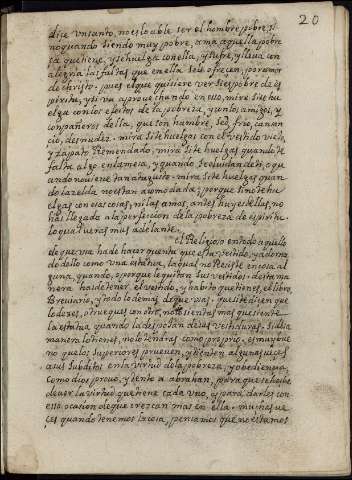 20
dise vn santo, no es loable ser el hombre pobre, si
no quando siendo muy pobre, ama aquella pobre
sa que tiene, y se huelga con ella, y sufre, y lleua con
alegria las faltas que en ella se le ofrecen, por amor
de christo. pues el que quisiere ver si es pobre de es
piritu, y si va aprouechando en eso, mire si se hu
elga con los efectos de la pobreza, y con los amigos, y
compañeros della, que son hambre, sed, frio, cansan
cio, desnudez. mira si te huelgas con el vestido viejo,
y zapato Remendado, mira si te huelgas quando te
falta algo en la mesa, y quando se oluidan de ti, o qu
ando no viene tan a tu gusto. mira si te huelgas quan
do la celda no es tan acomodada; porque si no te hu
elgas con esas cosas, ni las amas, antes huyes dellas, no
has llegado a la perfeccion de la pobreza de espiritu.
lo qual veras mas adelante.
el Religioso en todo aquello
de que vsa ha de hacer quenta que esta vestido, y adorna
do dello como vna estatua, la qual no Reciste en cosa al
guna, quando, o porque le quitan sus vestidos: desta ma
nera has de tener el vestido, y habito que tienes, el libro,
Breuiario, y todo lo demas de que vsas. que si te dicen que
lo dexes, o trueques con otro, no lo sientas mas que siente
la estatua, quando la despojan de sus vestiduras. si desta
manera lo tienes, no lo tendras como proprio. es muy bue
no que los superiores prueuen, y tienten algunas veçes
a sus subditos en la virtud de la pobreza, y obediencia,
como dios prouo, y tento a abrahan, para que se heche
de ver la virtud que tiene cada vno, y para darles con
eso ocasion de que crezcan mas en ella. muchas ve
çes quando tenemos la cosa, pensamos que no estamos